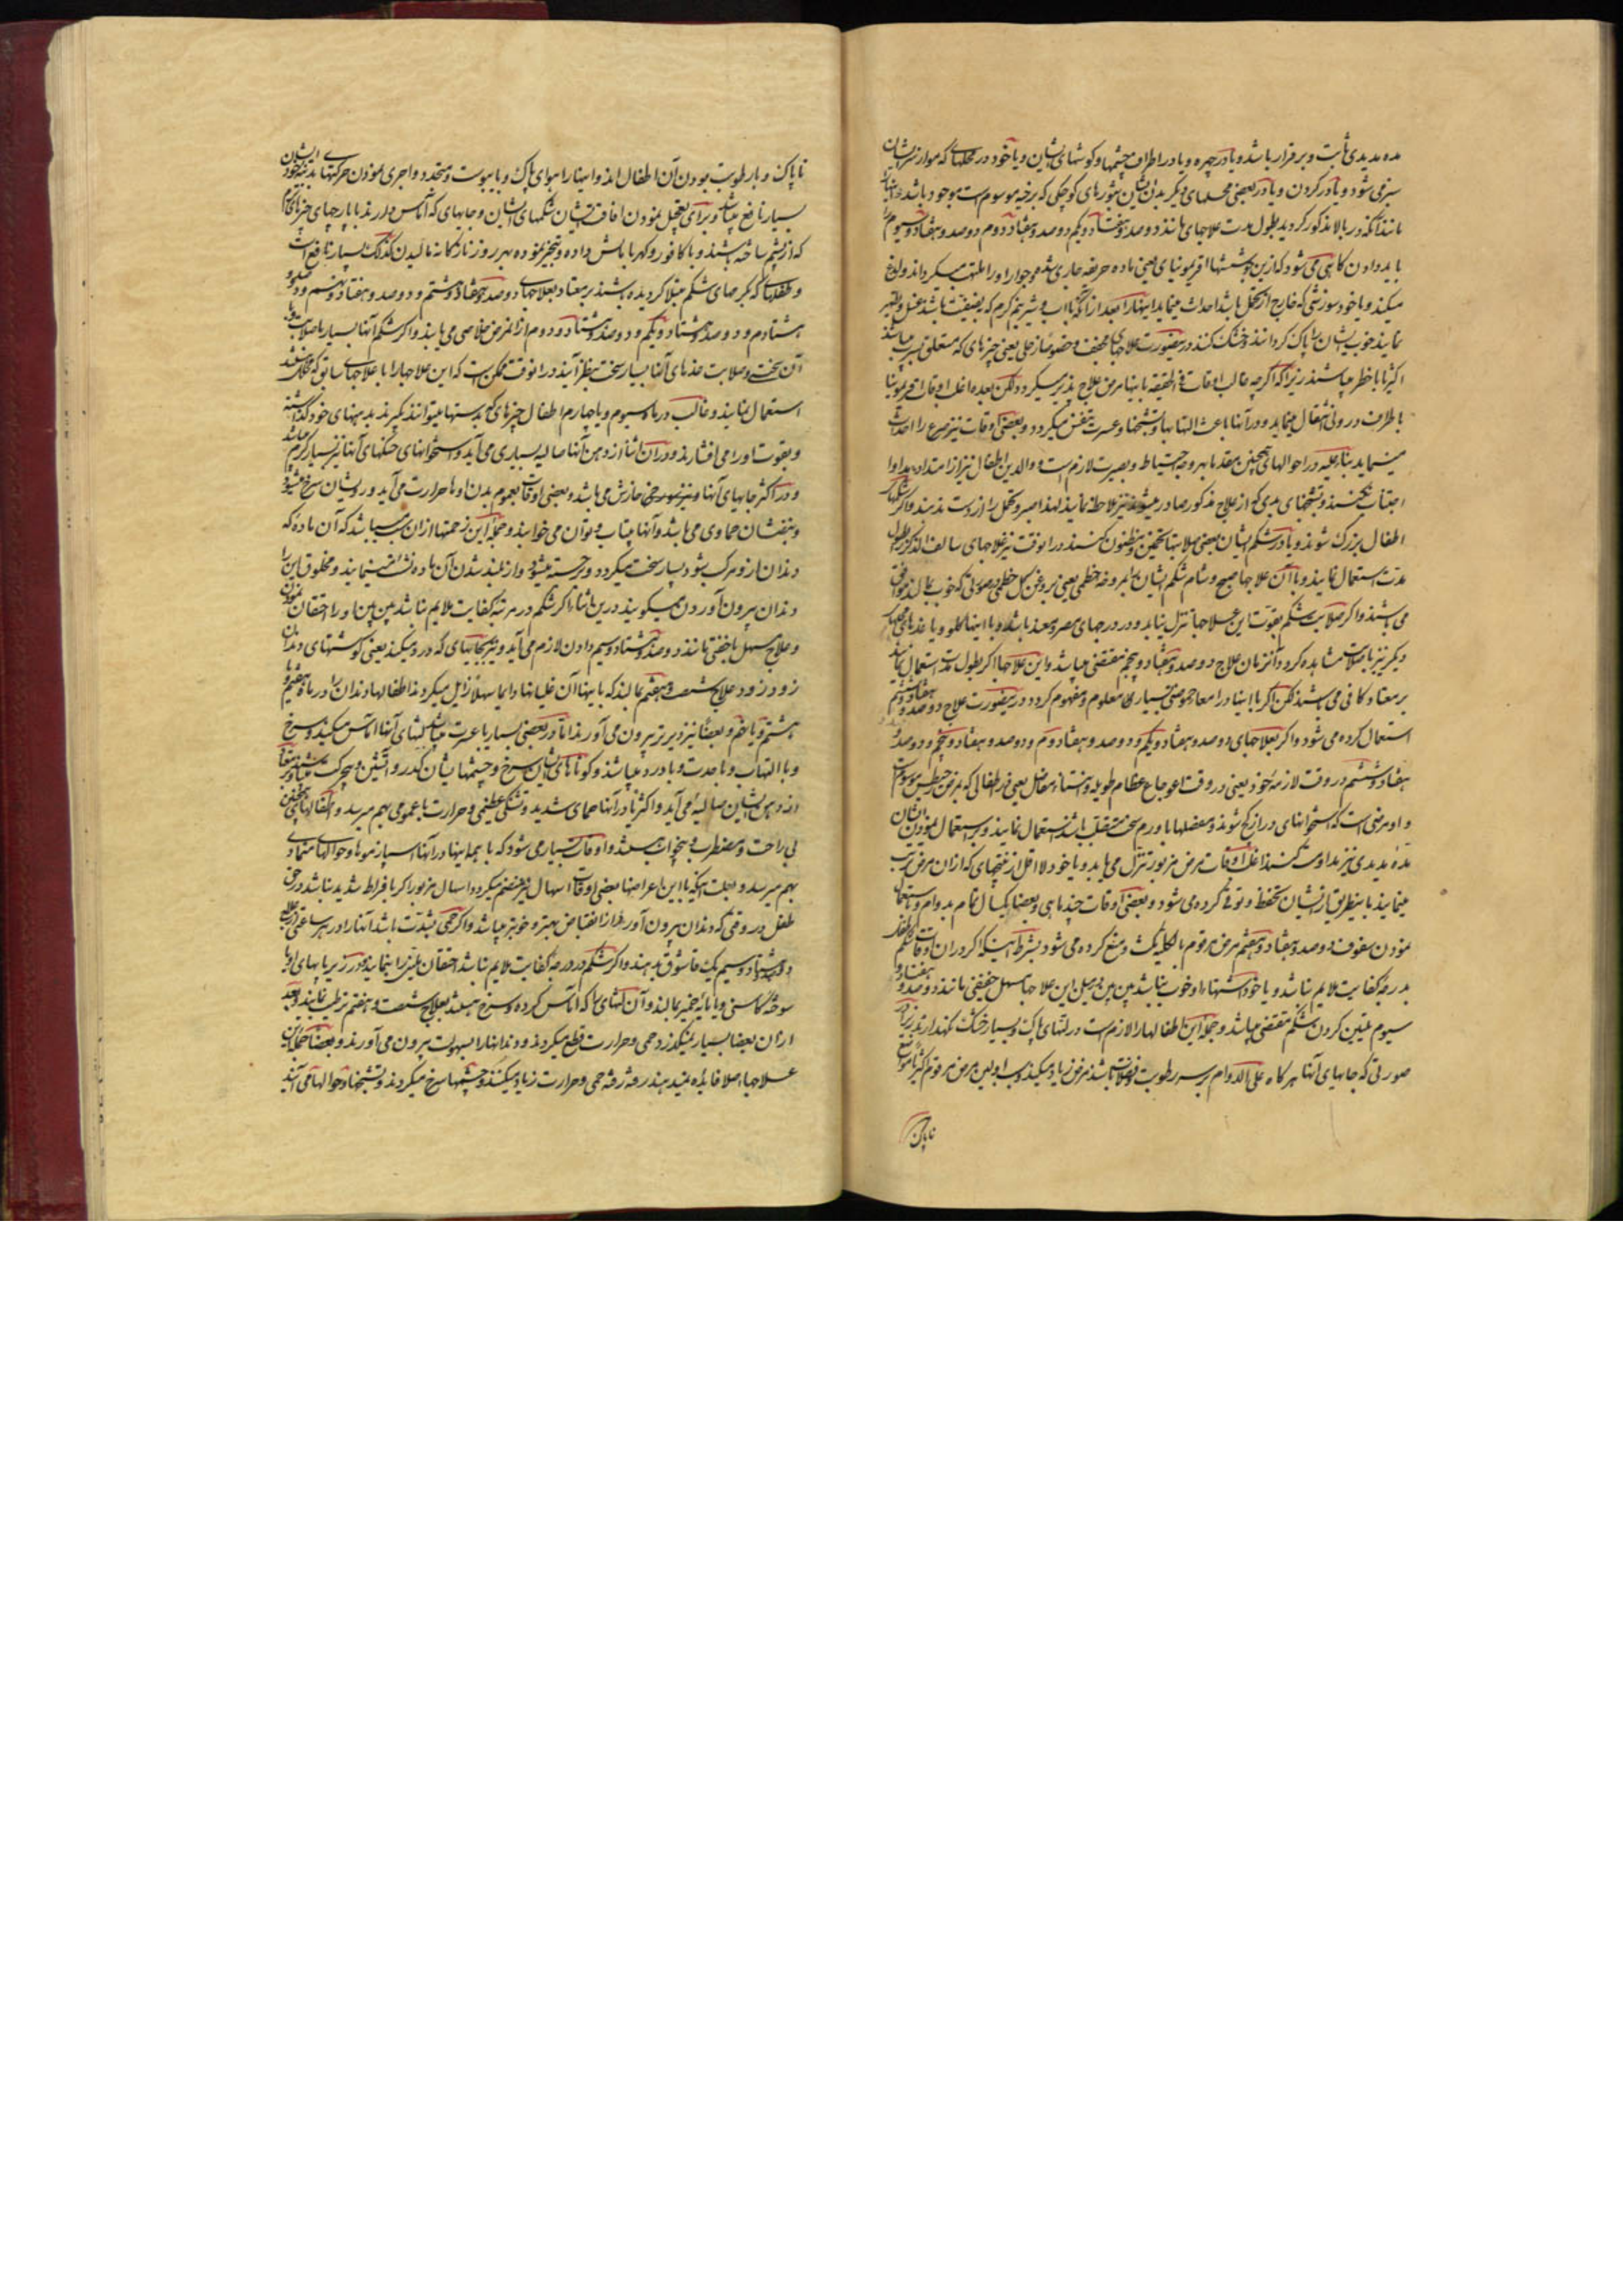 مده مدیدی ثابت و برقرار باشد و یا در چهره و یا در اطراف چشمها و کوشهای ایشان و یا خود در محلهای که موار سر ایشان
سبز می شود و یا در کردن و یا در بعضی محلهای دیگر بدن ایشان بثورهای کوچکی که برخیه موسوم است موجود باشد
مانند آنکه در بالا مذکور کردید بطول مدت علاجهای مانند دوصد و هفتاد و یکم و دوصد و هفتاد و دوم و دوصد و هفتاد و سیوم
باید دادن کاهی می شود که ازین
میکند و یا خود سوزشی که خارج از تحمل باشد احداث مینماید اینها را بعد از آنکه با آب و شیر نیم کرم
نمایند خوب ایشان را پاک کردانند و خشک کنند در اینصورت علاجهای مجفف و خصوصا زحلی یعنی چیزهای که متعلق بسرب میباشند
اکثریا با خطر میباشند زیرا که اکرچه غالب اوقات فی الحقیقه باینها مرض علاج پذیر میکردد ولکن بعده اغلب اوقات
باطراف درونی انتقال مینماید و در آنها باعث التهابها و تشنجها و عسرت تنفس میکردد و بعضی اوقات نیز صرع را احداث
مینماید بناء علیه در احوالهای همچنین بقدمها بهر وجه احتیاط و بصیرت لازم است و والدین اطفال نیز از امتداد مداوا
اجتناب نکنند و تشنجهای بدی که از علاج مذکور صادر میشوند نیز ملاحظه نمایند لهذا صبر و تحمل را از دست ندهند و اکر شکمهای
اطفال بزرک شوند و یا در شکم ایشان بعضی صلابتها تخمین و مظنون کنند در انوقت نیز علاجهای سالف الذکر بطول
مدت استعمال نمایند و با آن علاجها صبح و شام شکم ایشان را بمروخه خطمی یعنی بروغن کل خطمی
می باشند و اکر صلابت شکم بقوت این علاجها تنزل نیابد و در درجهای مصر
دیکر نیز باصلابت مشاهده کردد آنزمان علاج دوصد و هفتاد و پنجم مقتضی میباشد و این علاجها اکر بطول مدت استعمال نمایند
بر معتاد کافی می باشند لکن اکر با اینها در امعا حموضتی بسیاری معلوم و مفهوم کردد در اینصورت علاج دوصد و هفتاد و ششم
استعمال کرده می شود و اکر بعلاجهای دوصد و هفتاد و یکم و دوصد و هفتاد و دوم و دوصد و هفتاد و پنجم و دوصد
هفتاد و ششم در وقت لازمه خود یعنی در وقت اعوجاع عظام طویله و انتفاخ مفاصل یعنی در اطفالی که بمرض
و او مرضی است که استخوانهای دراز کج شوند و مفصلها با ورم سخت منقلب باشند استعمال نمایند و بر استعمال نمودن ایشان
مدة مدیدی نیز مداومت کنند اغلب اوقات مرض مزبور تنزل می یابد و یا خود لا اقل از نتیجهای که از ان مرض ترتب
مینمایند باینطریق از ایشان تحفظ و توقی کرده می شود و بعضی اوقات چند ماهی و بعضا یکسال تمام بدوام و باستعمال
نمودن سفوف دوصد و هفتاد و هفتم مرض مرقوم بالکلیه نکث و منع کرده می شود بشرط اینکه اکر در ان اوقات شکم
بدرجه کفایت ملایم نباشد و یا خود اشتهاء او خوب نباشد بین بین و بدل این علاجها مسهل خفیفی مانند دوصد و هفتاد و
سیوم تلیین کردن شکم مقتضی میباشد و جمله این اطفالها را لازم است در لتهای پاک و بسیار خشک نکهدارند زیرا در
صورتی که جایهای آنها هر کاه علی الدوام بر سر رطوبت و فضلات باشند مرض زیاد میکند و سبب اولین مرض مرقوم اکثریا مواضع
ناپاک
ناپاک و با رطوبت بودن آن اطفال اند و اینها را هوای پاک و با یبوست و متجدد و اجری نمودن حرکتهای بدنیه خود ایشان
بسیار نافع میباشد و برای تعجیل نمودن افاقت ایشان شکمهای ایشان و جایهای که آماس دارند با پارچهای چیزهای کرم
که از پشم ساخته باشند و با کافور و کهربا مالش داده و تبخیر نموده بهر روز نازکانه مالیدن کذلک بسیار نافع است
و طفلهای که بکرمهای شکم مبتلا کردیده باشند بر معتاد بعلاجهای دوصد و هفتاد و هشتم و دوصد و هفتاد و نهم و دوصد و
هشتادم و دوصد و هشتاد و یکم و دوصد و هشتاد و دوم از انمرض خلاصی می یابند و اکر شکم آنها بسیار با صلابت
آن سختی و صلابت غدهای آنها بسیار سخت بنظر آیند در انوقت ممکن است که این علاجها را با علاجهای سابق که
استعمال نمایند و غالب در ماه سیوم و یا چهارم اطفال چیزهای که بدستها میتوانند بکیرند بدهنهای خود کذاشته
و بقوت او را می افشارند و در ان اثنا از دهن آنها صالیه بسیاری می آید و استخوانهای حنکهای آنها نیز بسیار کرم میباشد
و در اکثر جایهای آنها و نیز سرخی خارش می باشد و بعضی اوقات بعموم بدن اوها حرارت می آید و رویشان سرخ میشود
و نبضشان حماوی می باشد و آنها بیتاب و بیتوان می خوابند و جمله این زحمتها از ان سبب میباشد که آن ماده که
دندان از او مرکب شود بسیار سخت میکردد و برجسته میشود و از بلند شدن آن ماده نشأت مینمایند و مخلوق این را
دندان بیرون آوردن میکویند درین اثنا اکر شکم در مرتبه کفایت ملایم نباشد بین بین او را احتقان نمودن
و علاج مسهل با خفتی مانند دوصد و هشتاد و سیم دادن لازم می آید و نیز بجایهای که درد میکنند یعنی کوشتهای دندان
زود زود علاج شصت و هفتم بمالند که باینها آن غلیانها دایما سهلا زایل میکردند اطفالها دندان را در ماه هفتم و یا
هشتم و یا نهم و بعضا نیز دیرتر بیرون می آورند اما در بعضی بسیار با عسرت میباشد لثهای آنها آماس میکنند و سرخ
و با التهاب و با حدت و با درد میباشند و کونهای ایشان سرخ و چشمهایشان کدر و آتشین و بی حرکت میباشند
از دهن ایشان صالیه می آید و اکثریا در آنها حمای شدید و تشنکی عظیمی و حرارت با عمومی بهم میرسد و اطفالهای همچنین
بی راحت و مضطرب و بیخواب میباشند و اوقات بسیار می شود که با همه اینها در آنها اسپازموها و حوالهای متمادی
بهم میرسد و بعلت اینکه با این اعراضها بعضی اوقات اسهال نیز منضم میکردد اسهال مزبور اکر با فراط شدید نباشد در حق
طفل در وقتی که دندان بیرون آورد از انقباض بهتر و خوبتر میباشد و اکر حمی بشدت باشد آنها را در هر ساعتی از علاج
دوصد و هشتاد و سیم یک قاشوق بدهند و اکر شکم در درجه کفایت ملایم نباشد احتقان ملین را بنمایند و در زیر پایهای اوها
سوخته کاسنی و یا مایه خمیر بمالند و آن لثهای را که آماس کرده و سرخ میباشد بعلاج شصت و هفتم ترطیب نمایند و بعد
از ان بعضا بسیار نمیکذرد حمی و حرارت قطع میکردند و دندانها را بسهولت بیرون می آورند و بعضا جمله این
علاجها اصلا فایده نمیدهند رفته رفته حمی و حرارت زیاد میکنند و چشمها سرخ میکردند و تشنجها و حوالها می آیند